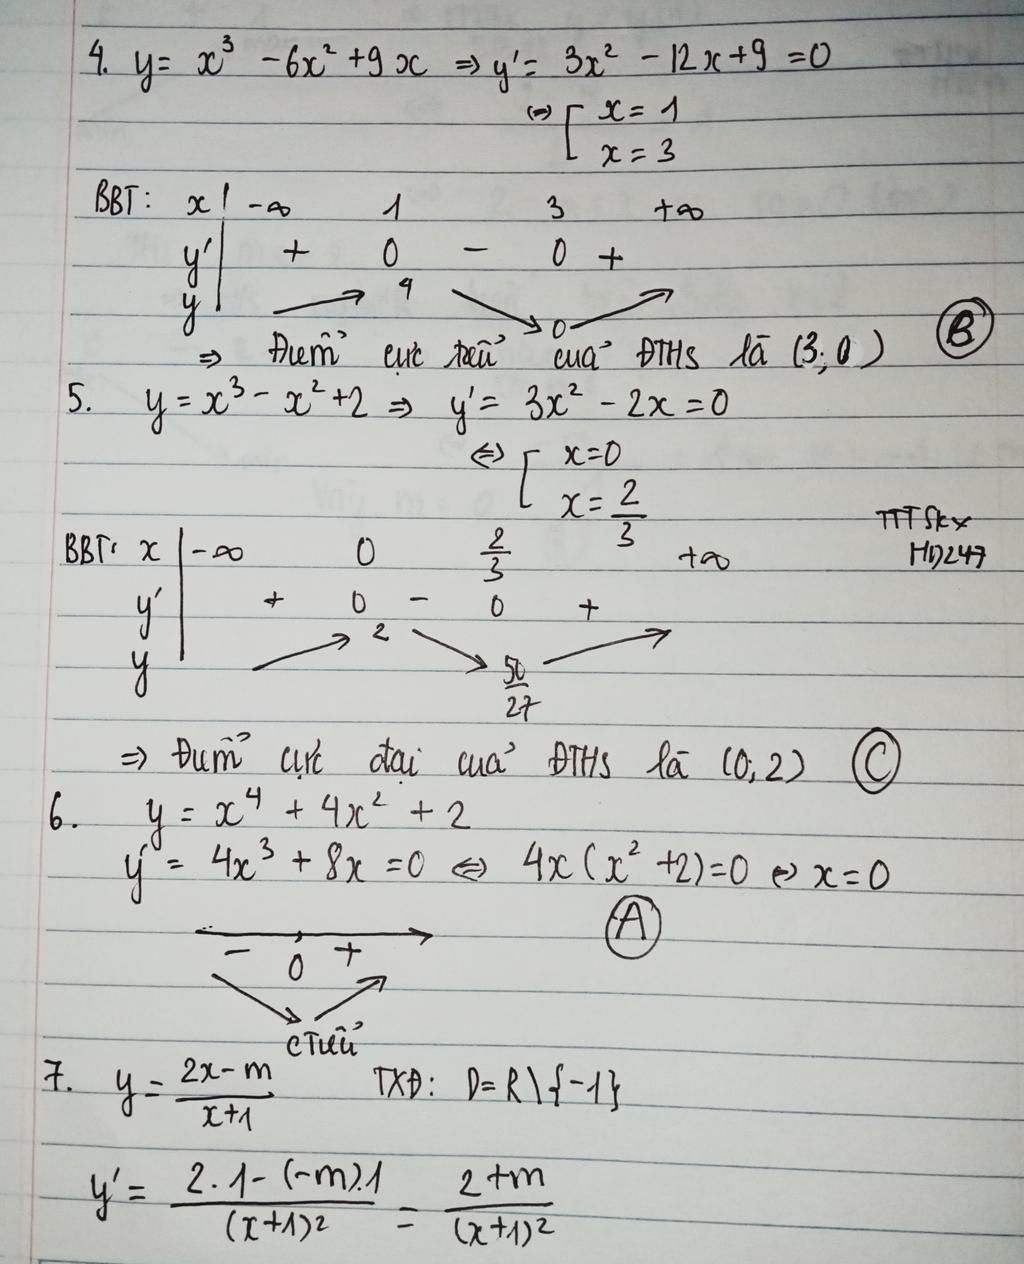 4. y = x³ - 6x² + 9x ⇒ y' = 3x² - 12x + 9 = 0
⇔ [ x = 1
x = 3
BBT: x | -∞ 1 3 +∞
y' + 0 - 0 +
y 4 0
⇒ Điểm cực tiểu của ĐTHS là (3; 0) B
5. y = x³ - x² + 2 ⇒ y' = 3x² - 2x = 0
⇔ [ x = 0
x = 2/3
TTTSkx
HD247
BBT: x | -∞ 0 2/3 +∞
y' + 0 - 0 +
y 2 50/27
⇒ Điểm cực đại của ĐTHS là (0; 2) C
6. y = x⁴ + 4x² + 2
y' = 4x³ + 8x = 0 ⇔ 4x(x² + 2) = 0 ⇔ x = 0
A
- 0 +
cTiểu
7. y = (2x - m)/(x + 1) TXĐ: D = R \ {-1}
y' = (2.1 - (-m).1)/(x+1)² = (2 + m)/(x+1)²